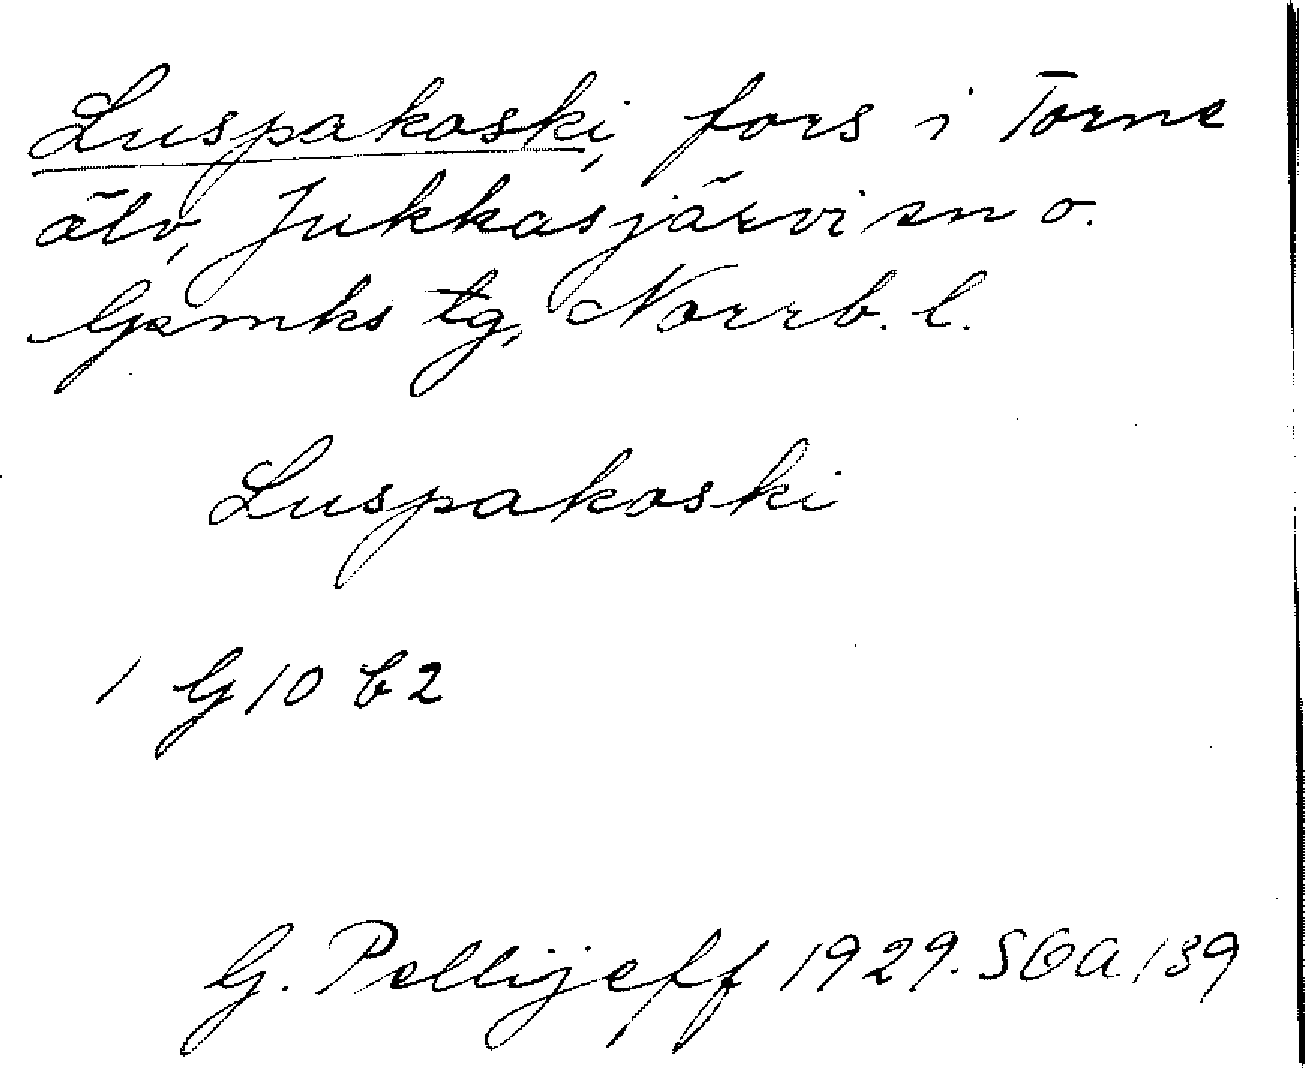 Luspakoski, fors i Torne
älv, Jukkasjärvi sn o.
Gmks tg, Norrb. l.
Luspakoski
1 G 10 b 2
G. Pellijeff 1929. SOA 139